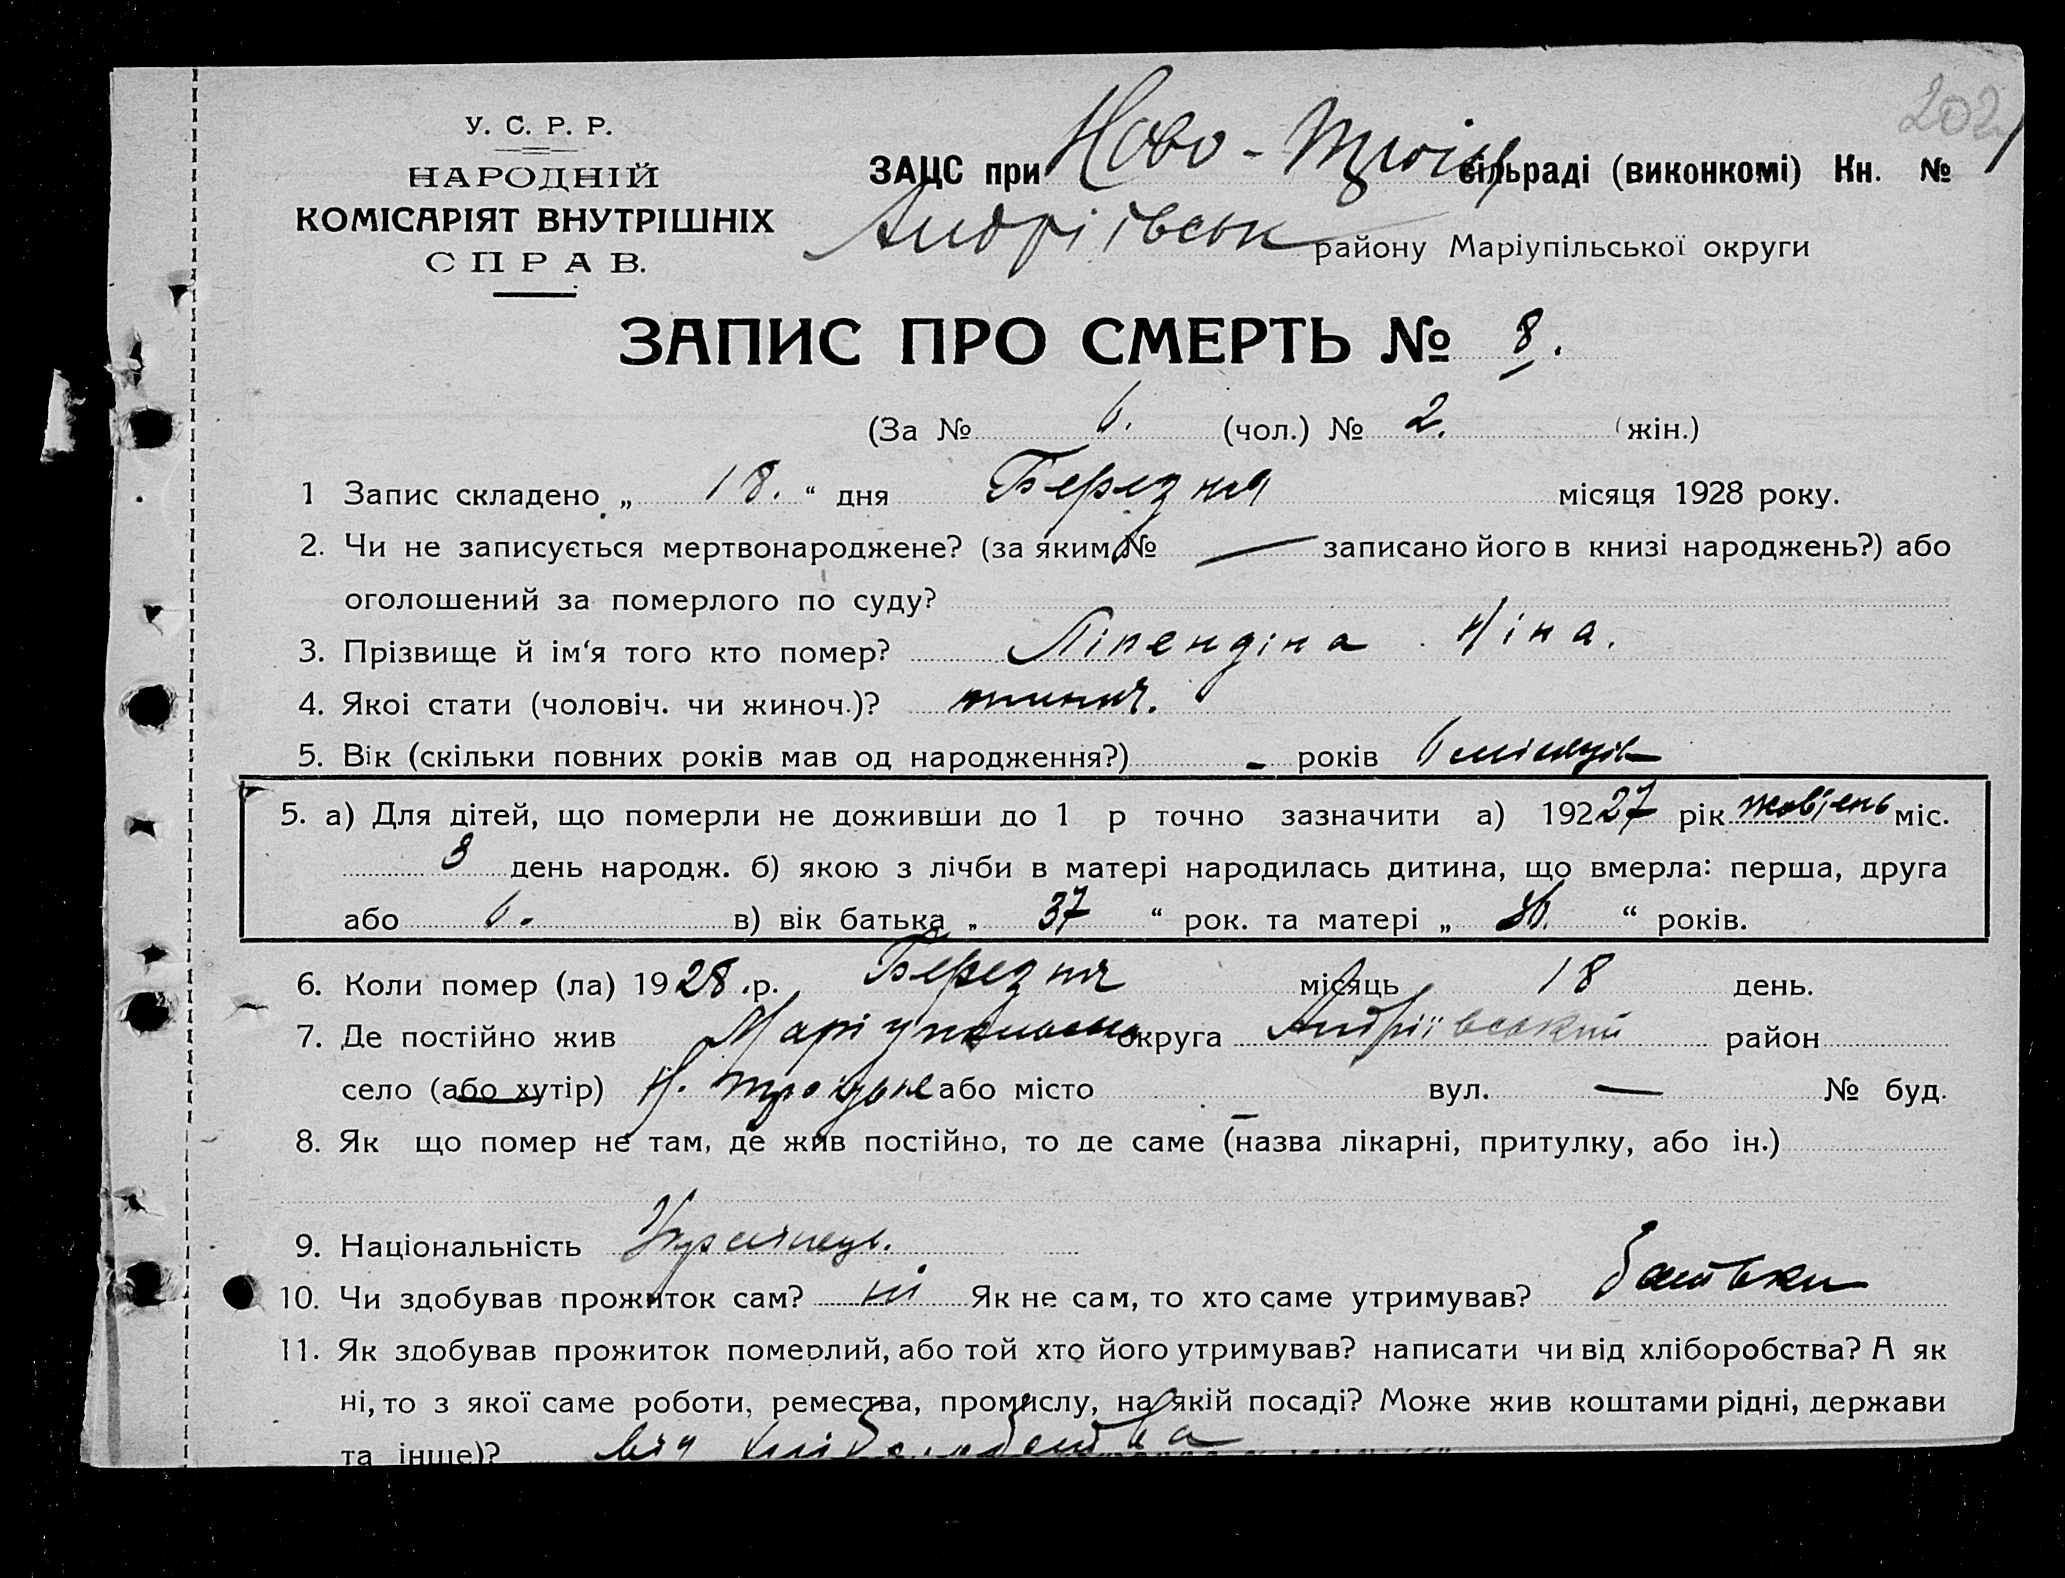 202
У. С. Р. Р.
НАРОДНІЙ
КОМІСАРІЯТ ВНУТРІШНІХ
СПРАВ.
ЗАЦС при Ново-Троіц сільраді (виконкомі) Кн. №
Андріівськ району Маріупільської округи
ЗАПИС ПРО СМЕРТЬ № 8.
(За № 6. (чол.) № 2. (жін.)
1 Запис складено „ 18. “ дня Березня місяця 1928 року.
2. Чи не записується мертвонароджене? (за яким № — записано його в книзі народжень?) або
оголошений за померлого по суду?
3. Прізвище й ім‘я того кто помер? Ліпендіна Ніна.
4. Якоі стати (чоловіч. чи жиноч.)? жиноч.
5. Вік (скільки повних років мав од народження?) - років 6 місяців
5. а) Для дітей, що померли не доживши до 1 р точно зазначити а) 192 27 рік жовтень міс.
3 день народж. б) якою з лічби в матері народилась дитина, що вмерла: перша, друга
або 6. в) вік батька „ 37 “ рок. та матері „ “ років.
6. Коли помер (ла) 1928 .р. Березня місяць 18 день.
7. Де постійно жив Маріупільська округа Андріївський район
село (або хутір) Н. Троіцьке або місто вул. — № буд.
8. Як що помер не там, де жив постійно, то де саме (назва лікарні, притулку, або ін.)
9. Національність Українець.
10. Чи здобував прожиток сам? ні Як не сам, то хто саме утримував? батьки
11. Як здобував прожиток померлий, або той хто його утримував? написати чи від хліборобства? А як
ні, то з якої саме роботи, ремества, промислу, на якій посаді? Може жив коштами рідні, держави
та інше)? від хліборобства